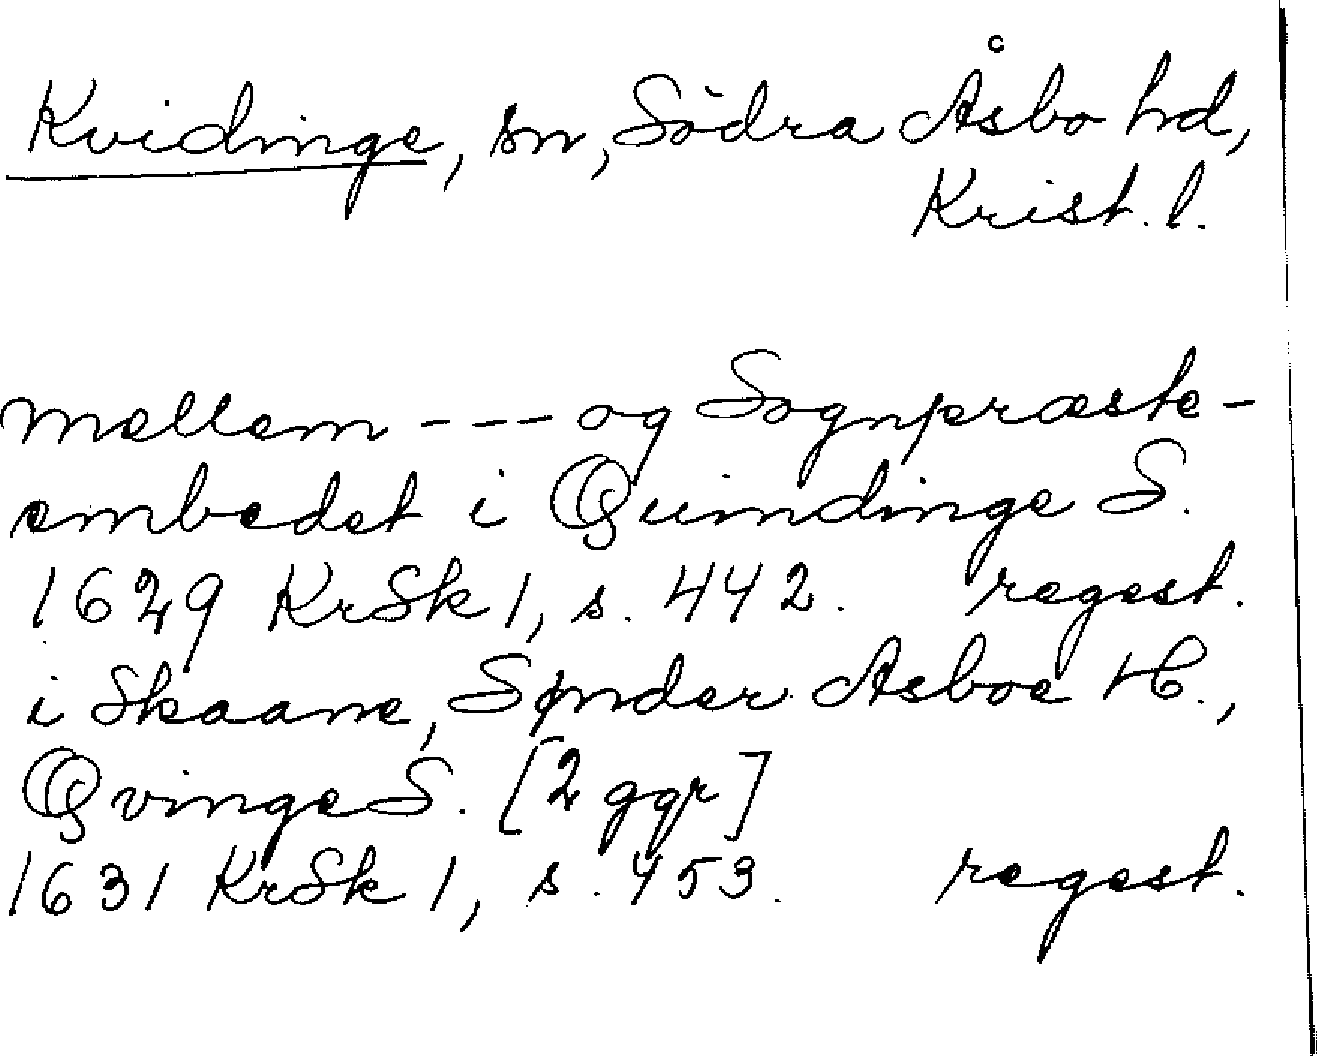 Kvidinge, sn, Södra Åsbo hd,
Krist. l.
mellem --- og Sognpræste-
embedet i Quindinge S.
1629 KrSk 1, s. 442. regest.
i Skaane, Sønder Asboe H.,
Qvinge S. [2 ggr]
1631 KrSk 1, s. 453. regest.